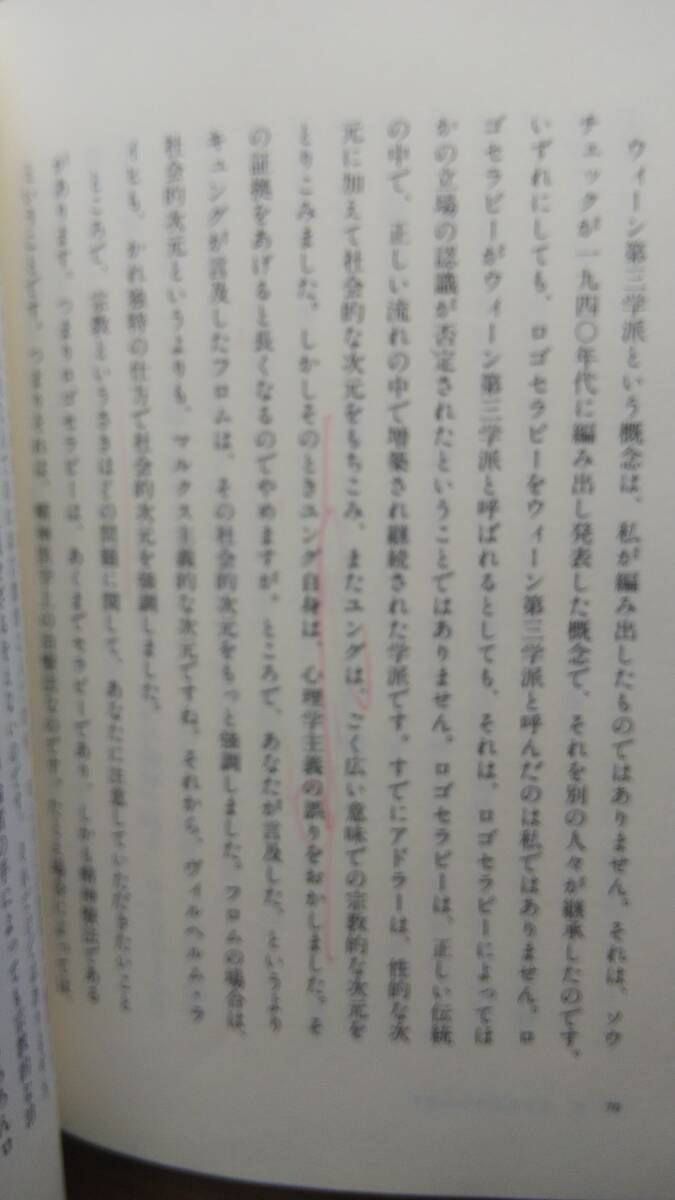 ウィーン第三学派という概念は、私が編み出したものではありません。それは、ソウ
チェックが一九四〇年代に編み出し発表した概念で、それを別の人々が継承したのです。
いずれにしても、ロゴセラピーをウィーン第三学派と呼んだのは私ではありません。ロ
ゴセラピーがウィーン第三学派と呼ばれるとしても、それは、ロゴセラピーによってほ
かの立場の認識が否定されたということではありません。ロゴセラピーは、正しい伝統
の中で、正しい流れの中で増築され継続された学派です。すでにアドラーは、性的な次
元に加えて社会的な次元をもちこみ、またユングは、ごく広い意味での宗教的な次元を
とりこみました。しかしそのときユング自身は、心理学主義の誤りをおかしました。そ
の証拠をあげると長くなるのでやめますが。ところで、あなたが言及した、というより
キュングが言及したフロムは、その社会的次元をもっと強調しました。フロムの場合は、
社会的次元というよりも、マルクス主義的な次元ですね。それから、ヴィルヘルム・ラ
イヒも、かれ独特の仕方で社会的次元を強調しました。
ところで、宗教というさきほどの問題に関して、あなたに注意していただきたいこと
があります。つまりロゴセラピーは、あくまでセラピーであり、しかも精神療法である
ということです。つまりそれは、精神医学上の治療法なのです。
70